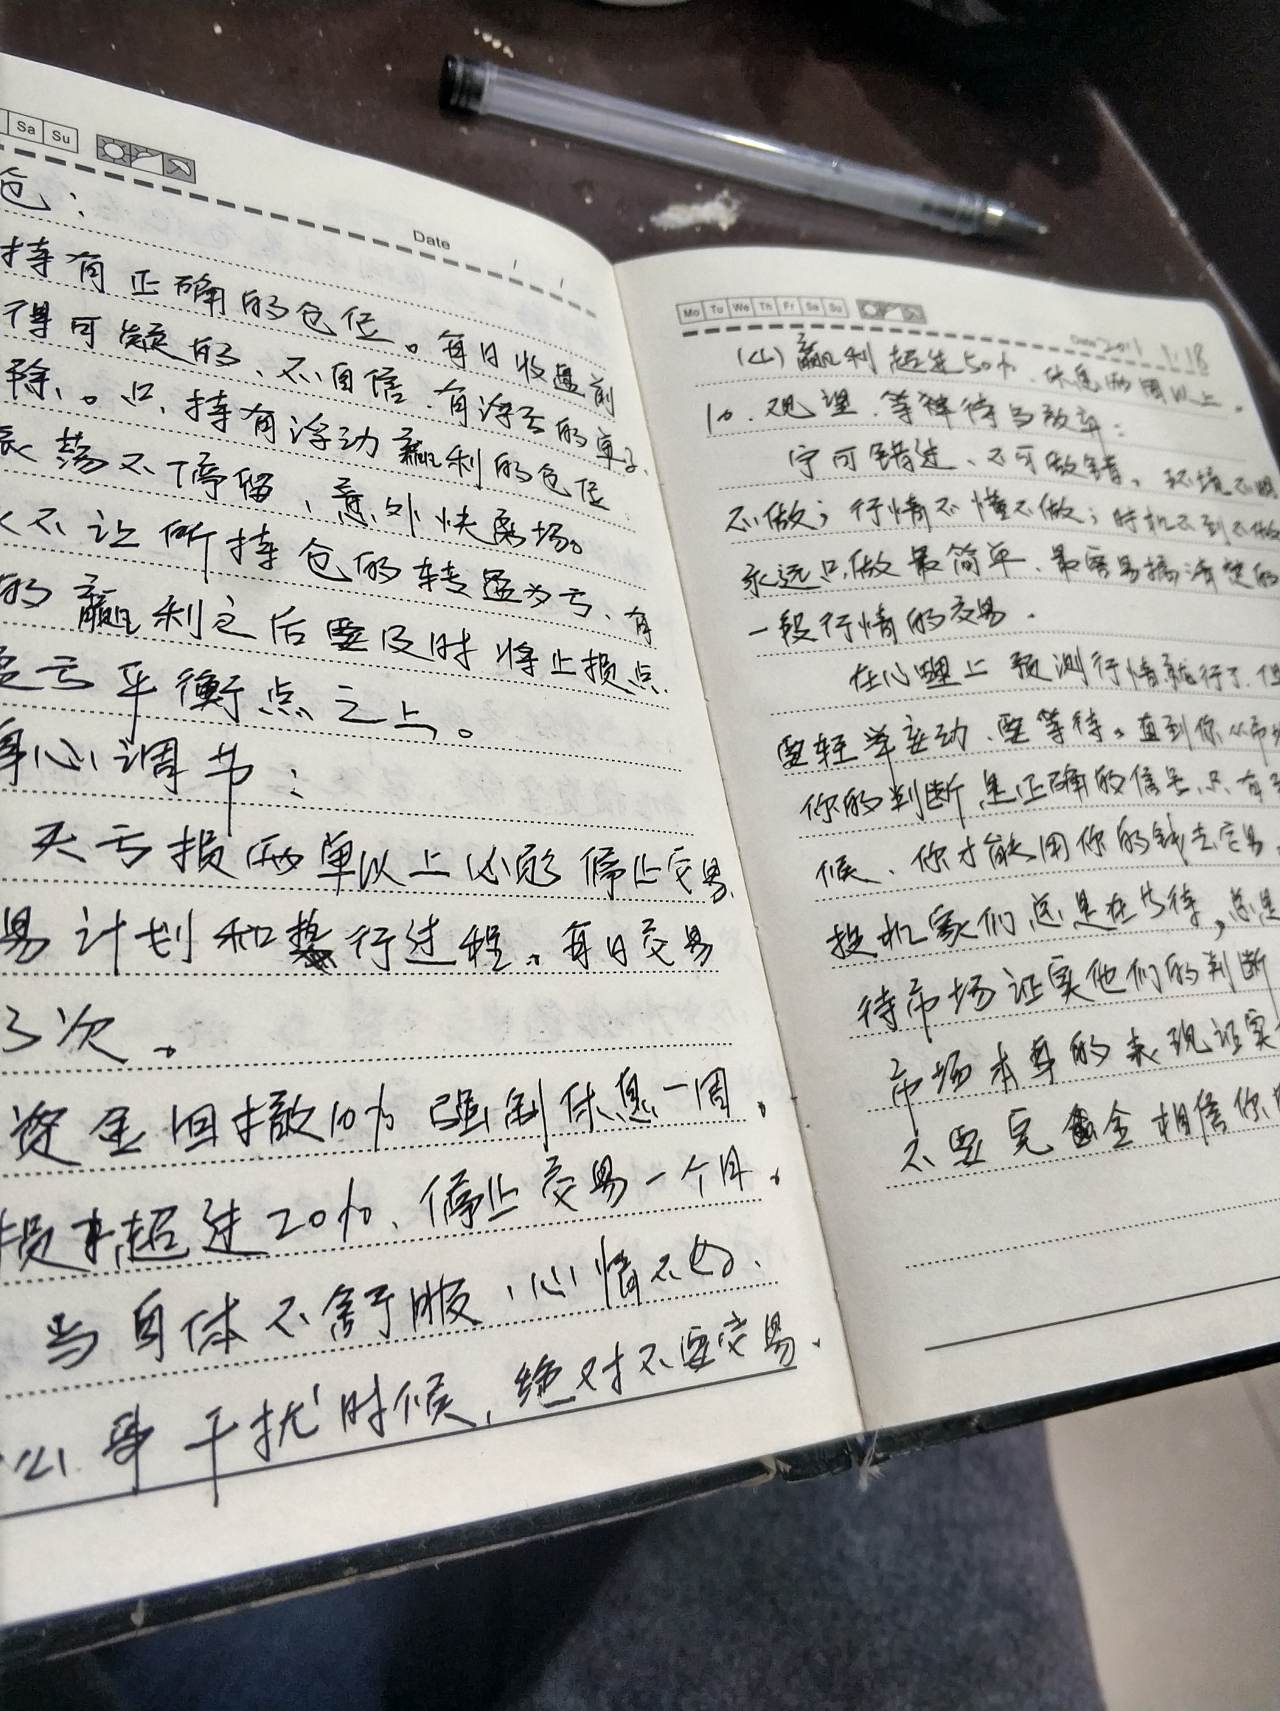 Sa Su
Date
仓：
持有正确的仓位。每日收盘前
得可疑的、不自信、有浮亏的单子、
除、。只持有浮动赢利的仓位
荡不停留、意外快离场。
不让所持仓的转盈为亏、有
的赢利之后要及时将止损点
亏平衡点之上。
身心调节：
天亏损两单以上必须停止交易、
易计划和执行过程。每日交易
3次。
资金回撤10%强制休息一周。
损失超过20%、停止交易一个月。
当身体不舒服、心情不好、
事干扰时候、绝对不要交易。
Mo Tu We Th Fr Sa Su
Date 1.18
(4)赢利超过50%、休息两周以上。
10.观望、等待
宁可错过、不可做错。环境不明
不做；行情不懂不做；时机不到不做
永远只做最简单、最容易搞清楚的
一段行情的交易.
在心理上预测行情就行了、但
要轻举妄动、要等待。直到你从市场
你的判断是正确的信号、只有
候、你才能用你的钱去交易、
投机家们总是在等待，总是
待市场证实他们的判断
市场本身的表现证实
不要完全相信你